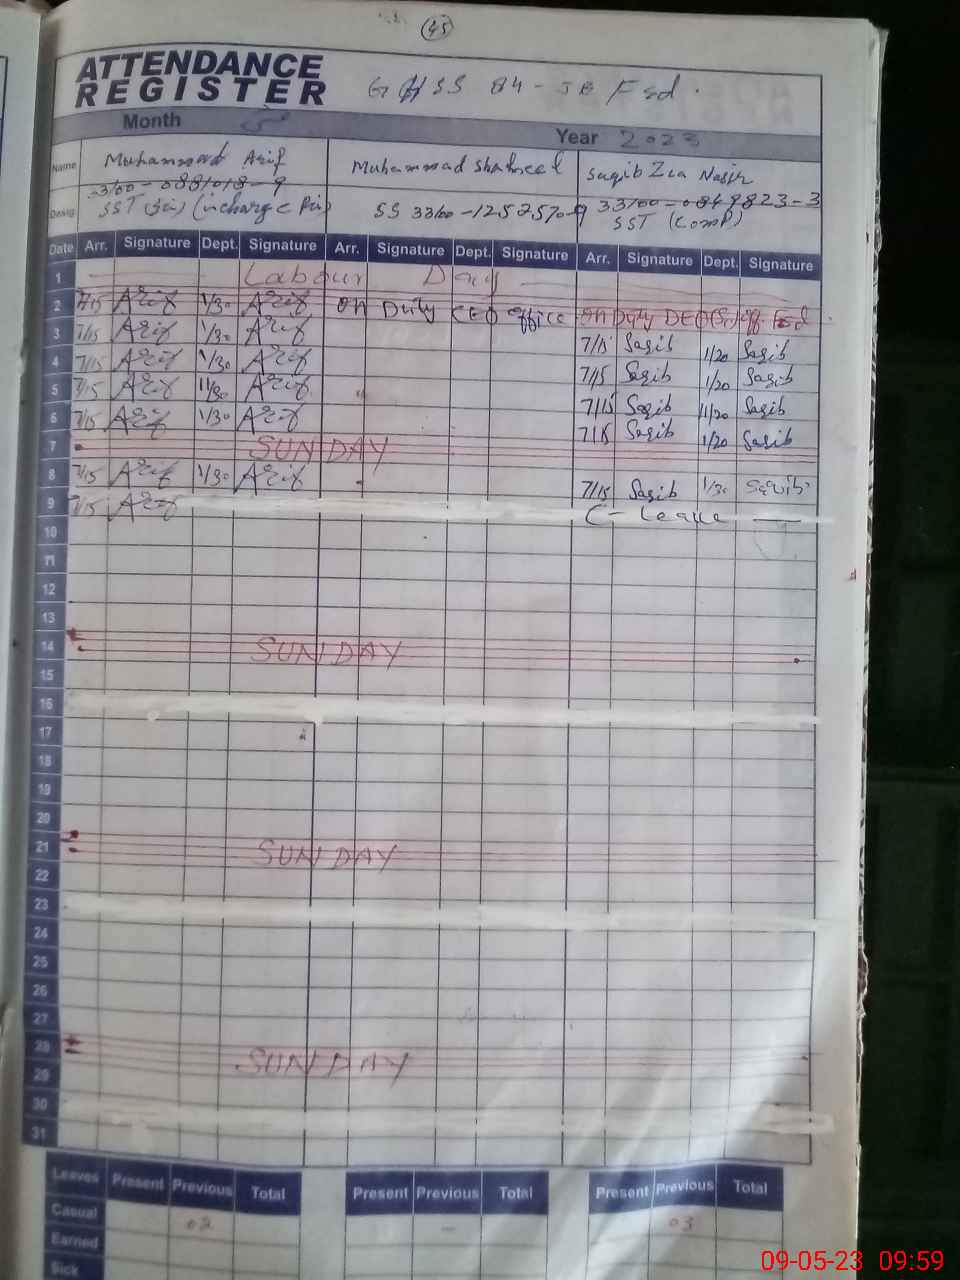 45
ATTENDANCE
REGISTER
GHSS 84-JB Fsd.
Month 5
Year 2023
Name Muhammad Arif Muhammad Shakeel Saqib Zia Nasir
33100-0881018-9 33100-0849823-3
Desig. SST (Sci) (incharge Pri) SS 33100-1252570-9 SST (Comp)
Date Arr. Signature Dept. Signature Arr. Signature Dept. Signature Arr. Signature Dept. Signature
1 Labour Day
2 7/15 Arif 1/30 Arif On Duty CEO office On Duty DEO Off. Fsd
3 7/15 Arif 1/30 Arif 7/15 Saqib 1/20 Saqib
4 7/15 Arif 1/30 Arif 7/15 Saqib 1/20 Saqib
5 7/15 Arif 11/30 Arif 7/15 Saqib 11/20 Saqib
6 7/15 Arif 1/30 Arif 7/15 Saqib 1/20 Saqib
7 SUNDAY
8 7/15 Arif 1/30 Arif 7/15 Saqib 1/30 Saqib
9 7/15 Arif C-Leave
10
11
12
13
14 SUNDAY
15
16
17
18
19
20
21 SUNDAY
22
23
24
25
26
27
28 SUNDAY
29
30
31
Leaves Present Previous Total Present Previous Total Present Previous Total
Casual 02 - 03
Earned
Sick
09-05-23 09:59